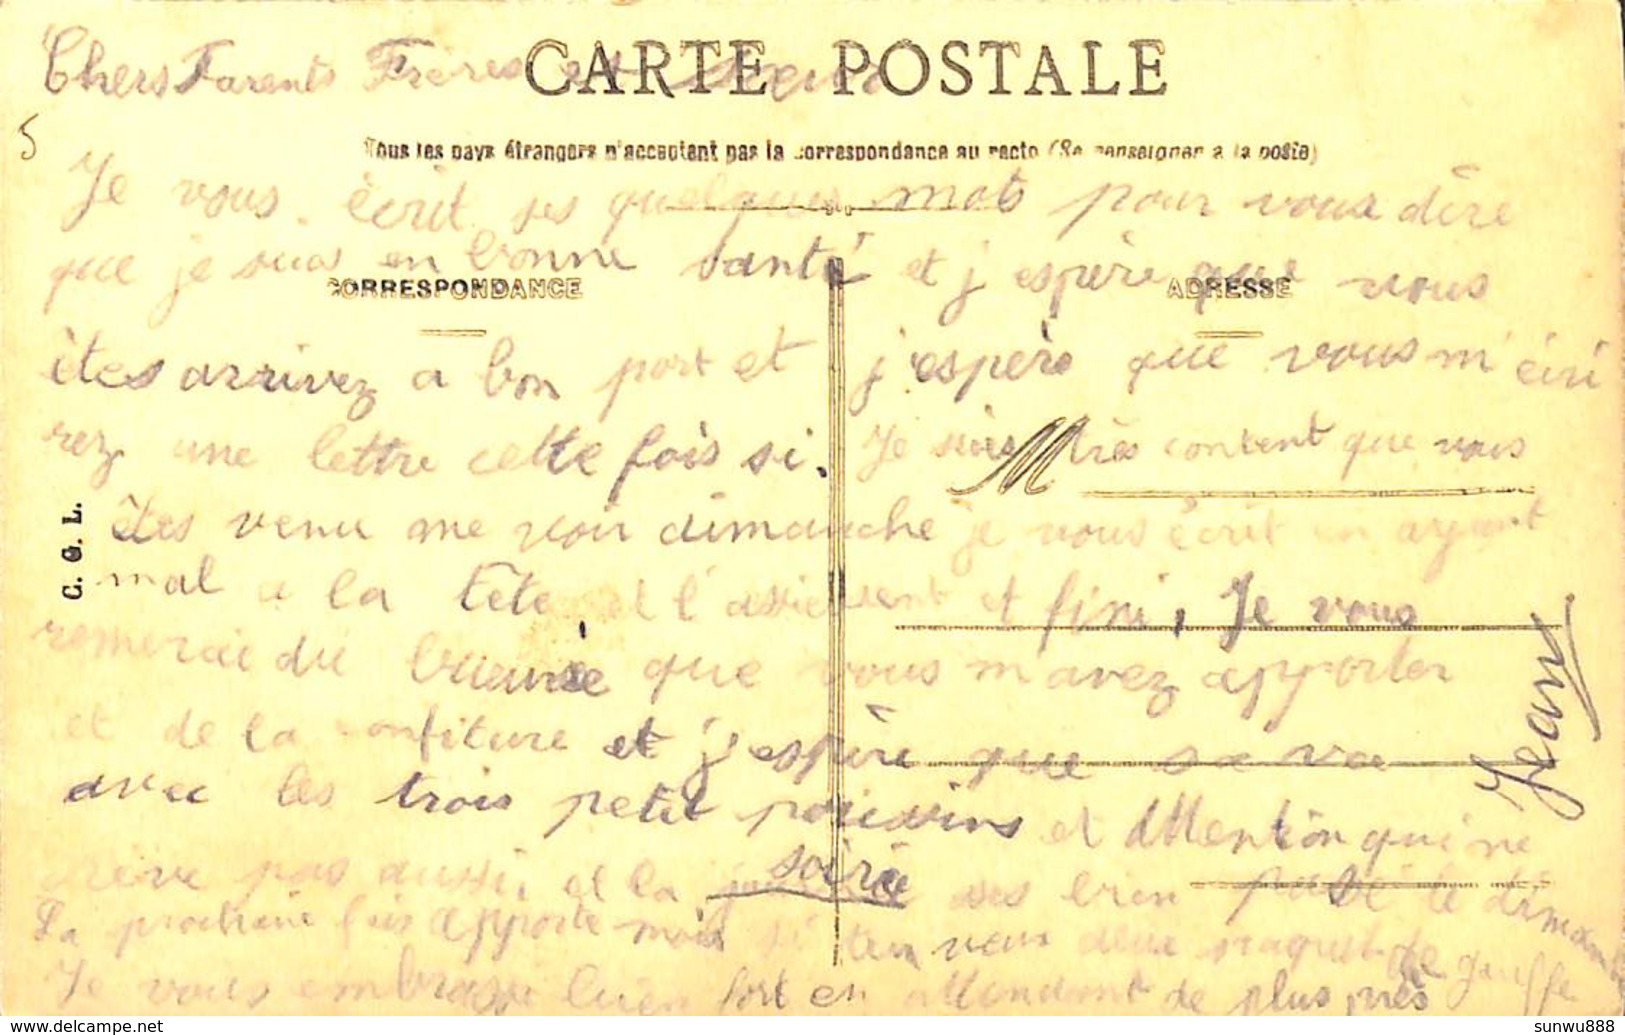 Chers Parents Frères et Sœur
CARTE POSTALE
5
Tous les pays étrangers n'acceptent pas la correspondance au recto (Se renseigner à la poste)
Je vous écrit ses quelques mots pour vous dire
que je suis en bonne santé et j espère que vous
CORRESPONDANCE
ADRESSE
êtes arrivez a bon port et j'espère que vous m'écri
rez une lettre cette fois si. Je suis très content que vous
M
êtes venu me voir dimanche je vous écrit en ayant
C. G. L.
mal a la tête et l' et fini, Je vous
remercie du que vous m'avez apporter
et de la confiture et j'espère que sa va
avec les trois petit et Attention qui ne
pas aussi, et la soirée ses bien passé le dimanche
La prochaine fois apporte moi si tu veux deux de
Je vous embrasse bien fort en attendant de plus près
Jean
sunwu888